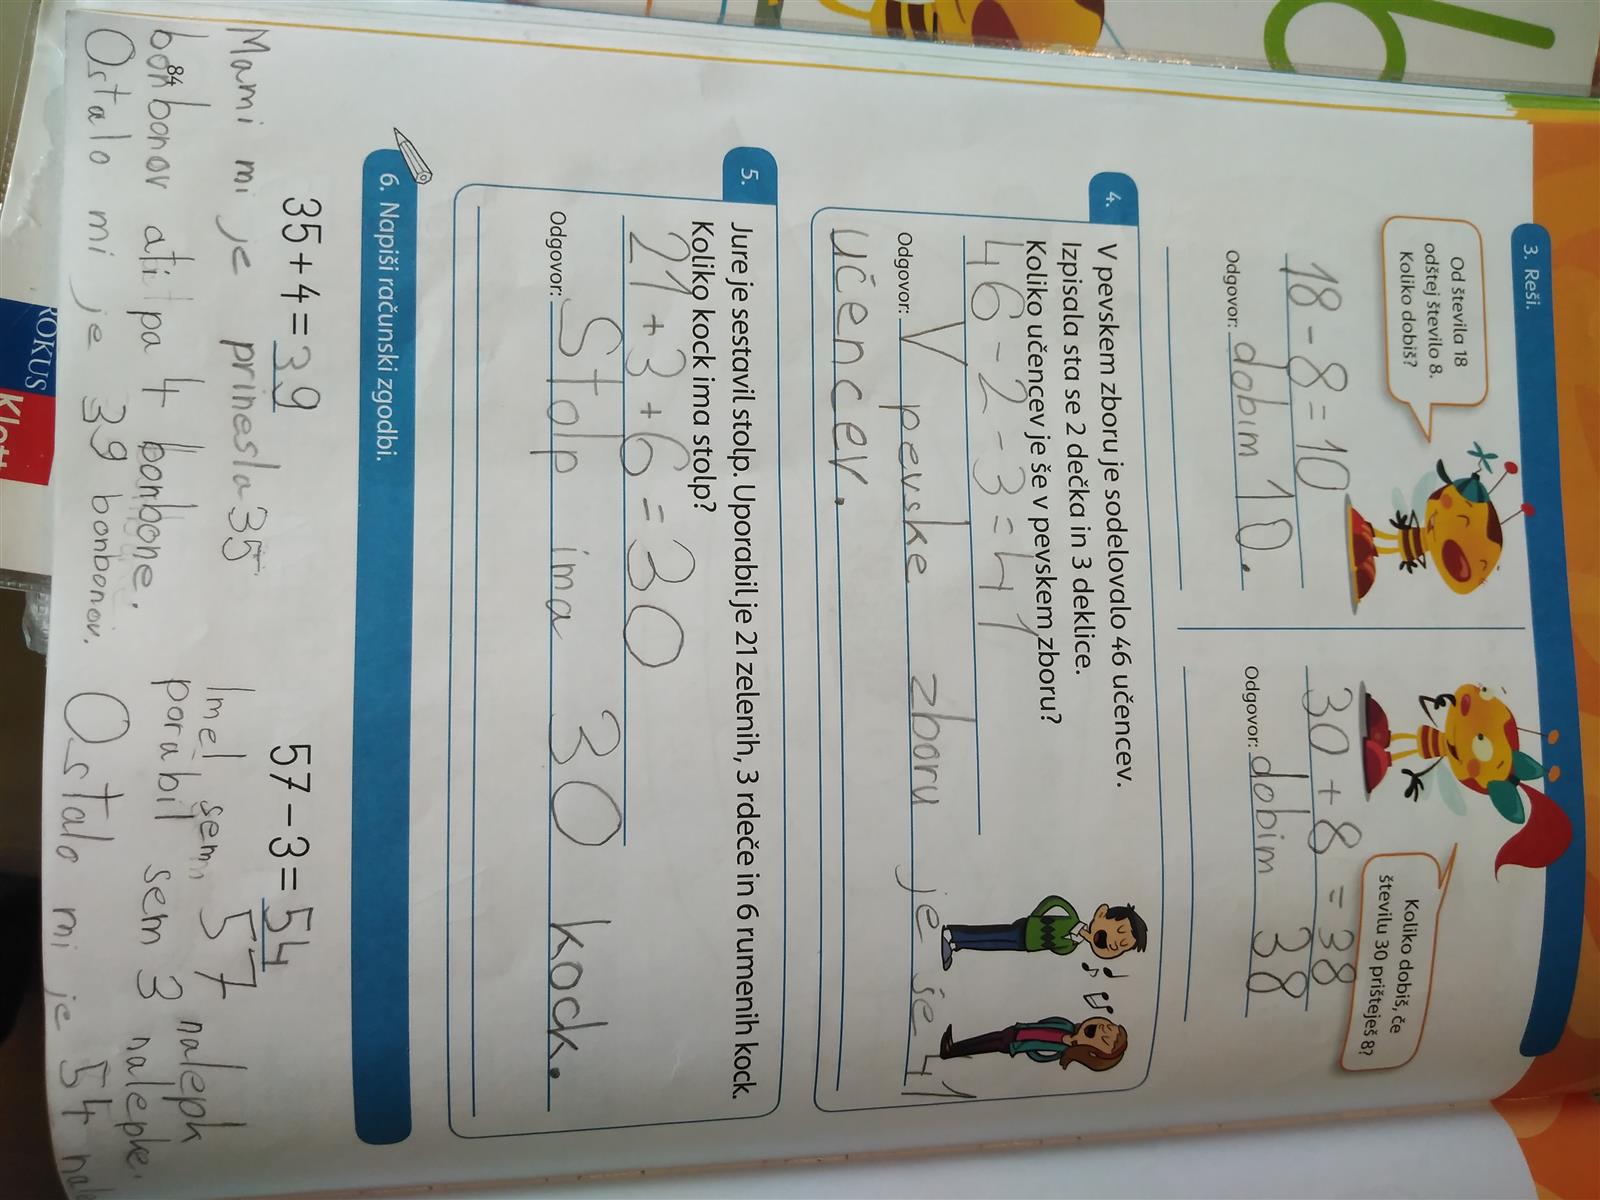 3. Reši.
Od števila 18
odštej število 8.
Koliko dobiš?
18 - 8 = 10
Odgovor: dobim 10.
Koliko dobiš, če
številu 30 prišteješ 8?
30 + 8 = 38
Odgovor: dobim 38
4. V pevskem zboru je sodelovalo 46 učencev.
Izpisala sta se 2 dečka in 3 deklice.
Koliko učencev je še v pevskem zboru?
46 - 2 - 3 = 41
Odgovor: V pevske zboru je še 41
učencev.
5. Jure je sestavil stolp. Uporabil je 21 zelenih, 3 rdeče in 6 rumenih kock.
Koliko kock ima stolp?
21 + 3 + 6 = 30
Odgovor: Stolp ima 30 kock.
6. Napiši računski zgodbi.
35 + 4 = 39
Mami mi je prinesla 35
bonbonov ati pa 4 bonbone.
Ostalo mi je 39 bonbonov.
57 - 3 = 54
Imel sem 57 nalepk
porabil sem 3 nalepke.
Ostalo mi je 54
84
ROKUS
Klett